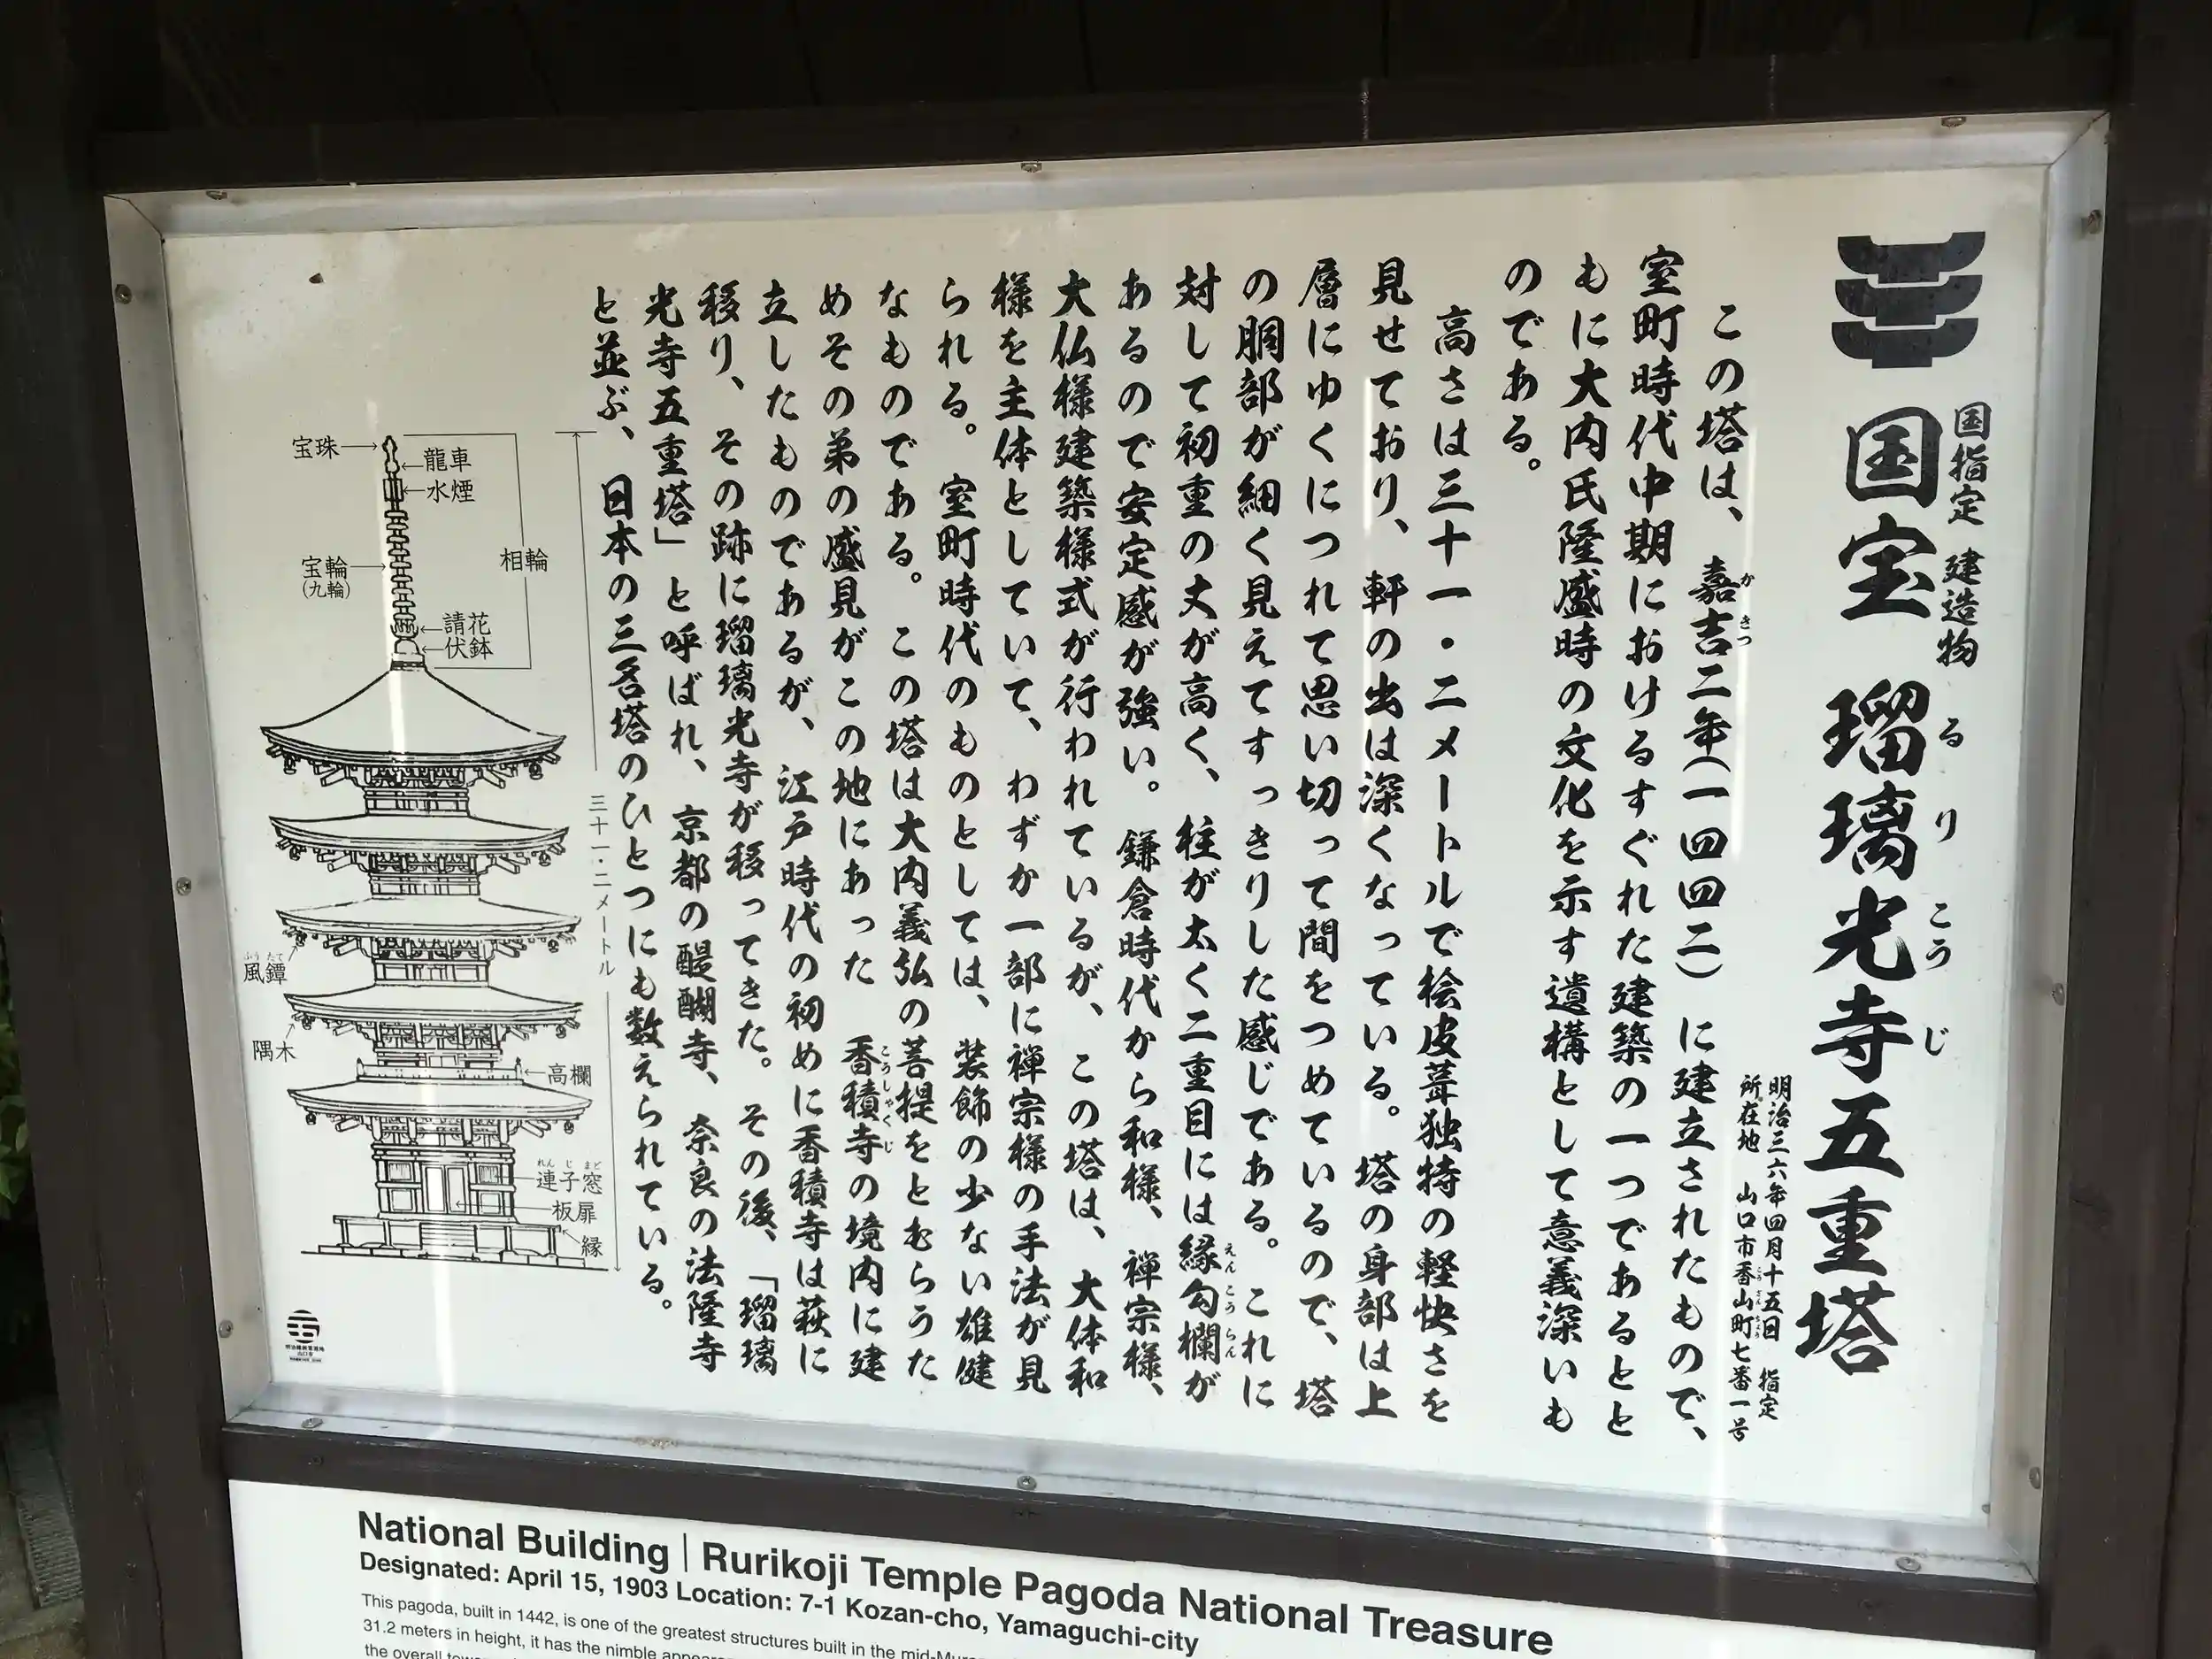 国指定 建造物
国宝 瑠璃光寺五重塔
るりこうじ
明治三六年四月十五日 指定
所在地 山口市香山町七番一号
こうざんちょう
この塔は、嘉吉二年(一四四二)に建立されたもので、
かきつ
室町時代中期におけるすぐれた建築の一つであるとと
もに大内氏隆盛時の文化を示す遺構として意義深いも
のである。
高さは三十一・二メートルで桧皮葺独特の軽快さを
見せており、軒の出は深くなっている。塔の身部は上
層にゆくにつれて思い切って間をつめているので、塔
の胴部が細く見えてすっきりした感じである。これに
対して初重の丈が高く、柱が太く二重目には縁勾欄が
えんこうらん
あるので安定感が強い。鎌倉時代から和様、禅宗様、
大仏様建築様式が行われているが、この塔は、大体和
様を主体としていて、わずか一部に禅宗様の手法が見
られる。室町時代のものとしては、装飾の少ない雄健
なものである。この塔は大内義弘の菩提をとむらうた
めその弟の盛見がこの地にあった 香積寺の境内に建
こうしゃくじ
立したものであるが、江戸時代の初めに香積寺は萩に
移り、その跡に瑠璃光寺が移ってきた。その後、「瑠璃
光寺五重塔」と呼ばれ、京都の醍醐寺、奈良の法隆寺
と並ぶ、日本の三名塔のひとつにも数えられている。
宝珠
龍車
水煙
相輪
宝輪
(九輪)
請花
伏鉢
三十一・二メートル
ふうたく
風鐸
隅木
高欄
れんじまど
連子窓
板扉
縁
National Building | Rurikoji Temple Pagoda National Treasure
Designated: April 15, 1903 Location: 7-1 Kozan-cho, Yamaguchi-city
This pagoda, built in 1442, is one of the greatest structures built in the
31.2 meters in height, it has the nimble
the overall